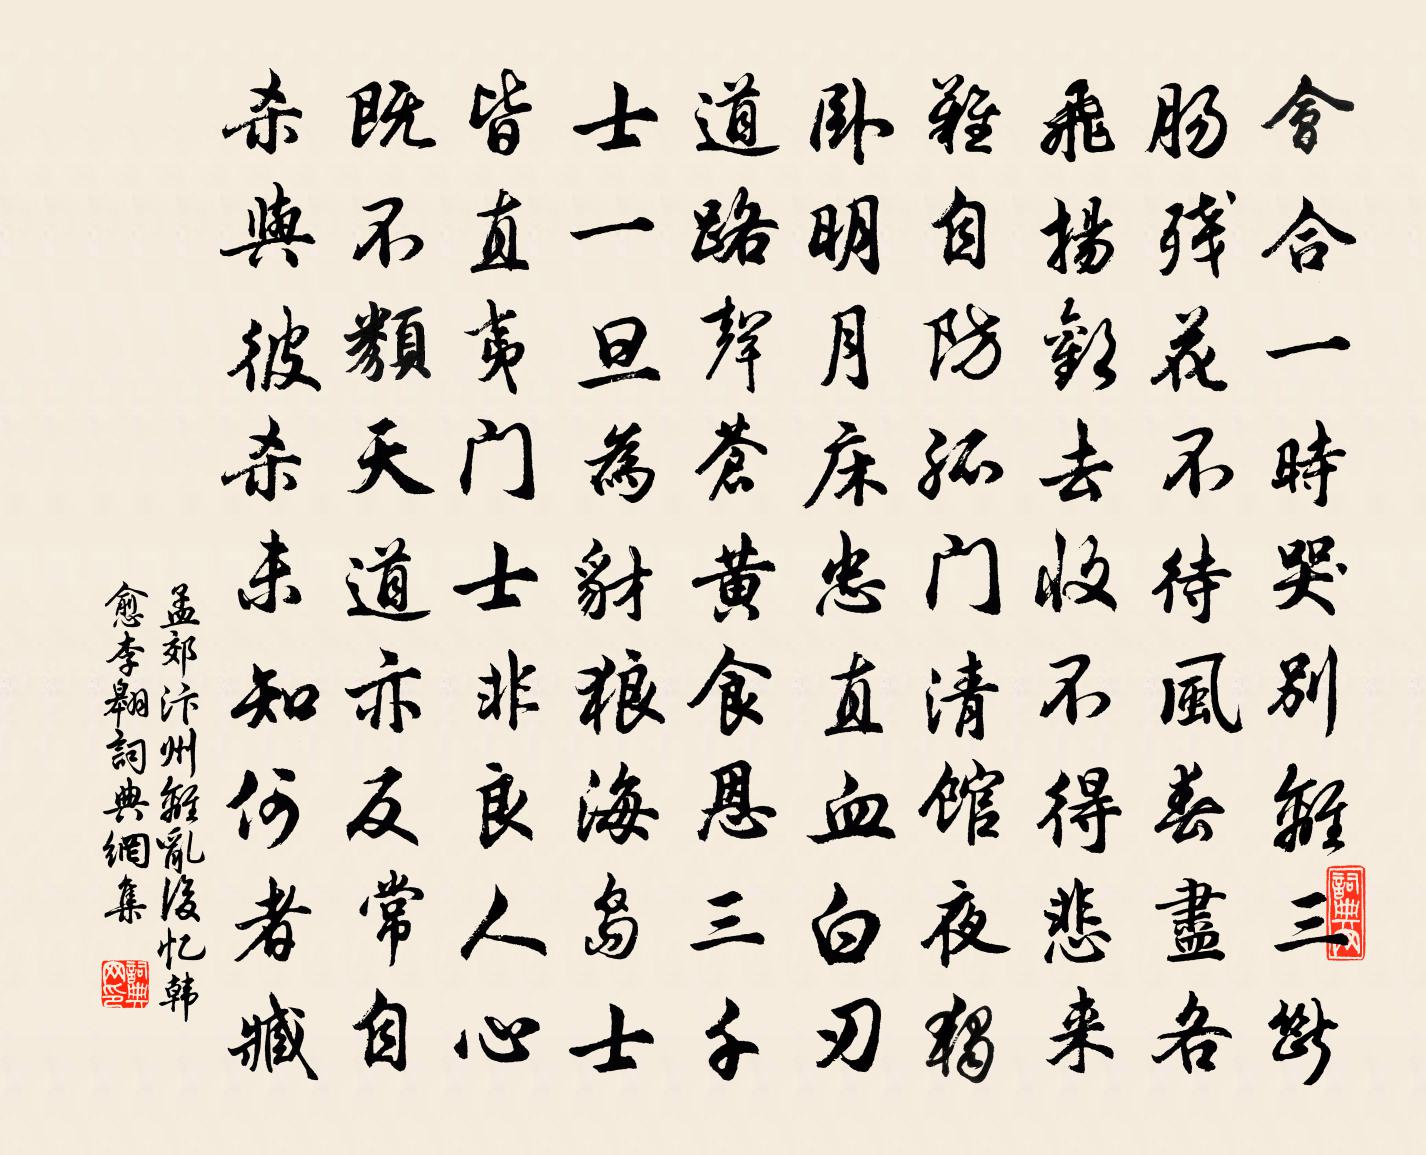 會合一時哭别離三斷
肠残花不待風春盡各
飛揚歡去收不得悲来
難自防孤门清馆夜獨
卧明月床忠直血白刃
道路聲蒼黄食恩三千
士一旦為豺狼海島士
皆直夷门士非良人心
既不類天道亦反常自
杀與彼杀未知何者臧
孟郊汴州離亂後忆韩
愈李翱詞典網集
詞典网
詞典网印